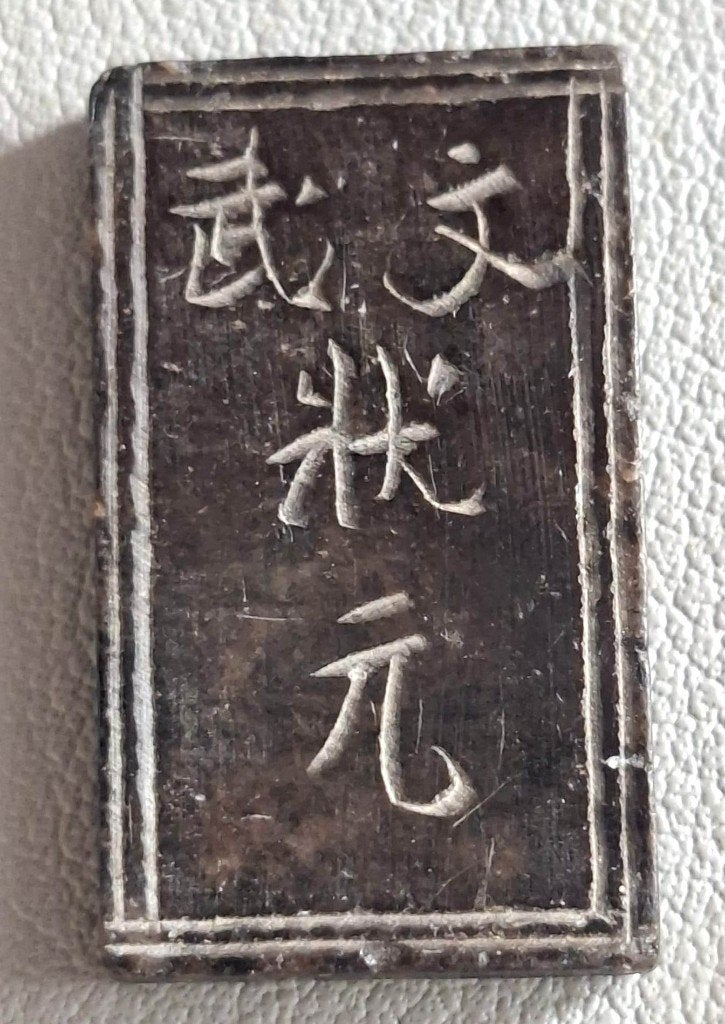 文武
狀
元